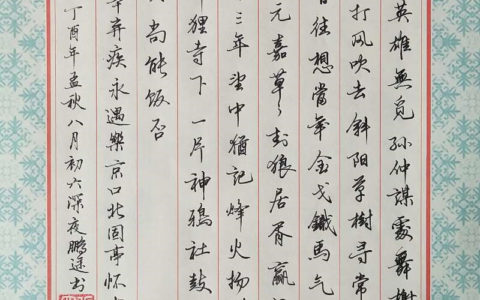 英雄無覓孫仲謀處舞榭
打风吹去斜阳草樹寻常
往想當年金戈鐵馬气
元嘉草々封狼居胥赢
三年望中猶记烽火扬
狸寺下一片神鴉社鼓
尚能饭否
辛弃疾永遇樂京口北固亭怀
丁酉年孟秋八月初六深夜鹏书